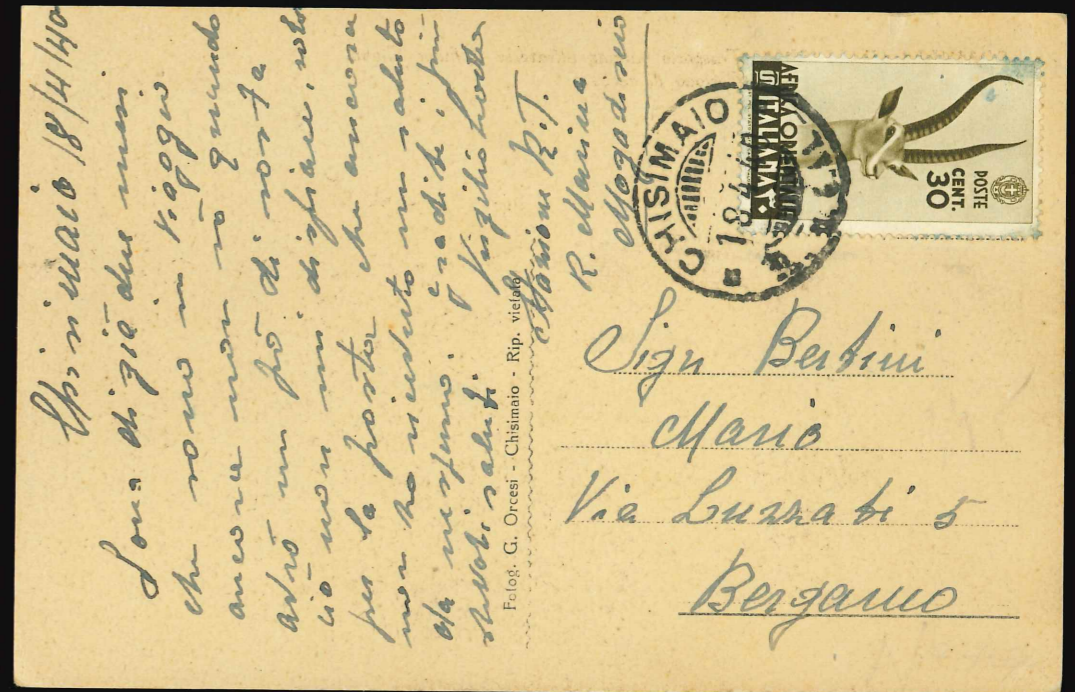 Chisimaio 18/4/40
Sono di già due mesi
che sono in viaggio
ancora non sò quando
avrò un pò di sosta
ciò non mi dispiace, solo
per la posta che ancora
non ho ricevuto un saluto
da nissuno. gradite i più
saluti Virgilio
Marconi R.T.
R. Marina
Mogadiscio
Fotog. G. Orcesi - Chisimaio - Rip. vietata
CHISIMAIO
18.4.40
AFRICA ORIENTALE
ITALIANA
POSTE
CENT.
30
Sign Bertini
Mario
Via Luzzati 5
Bergamo